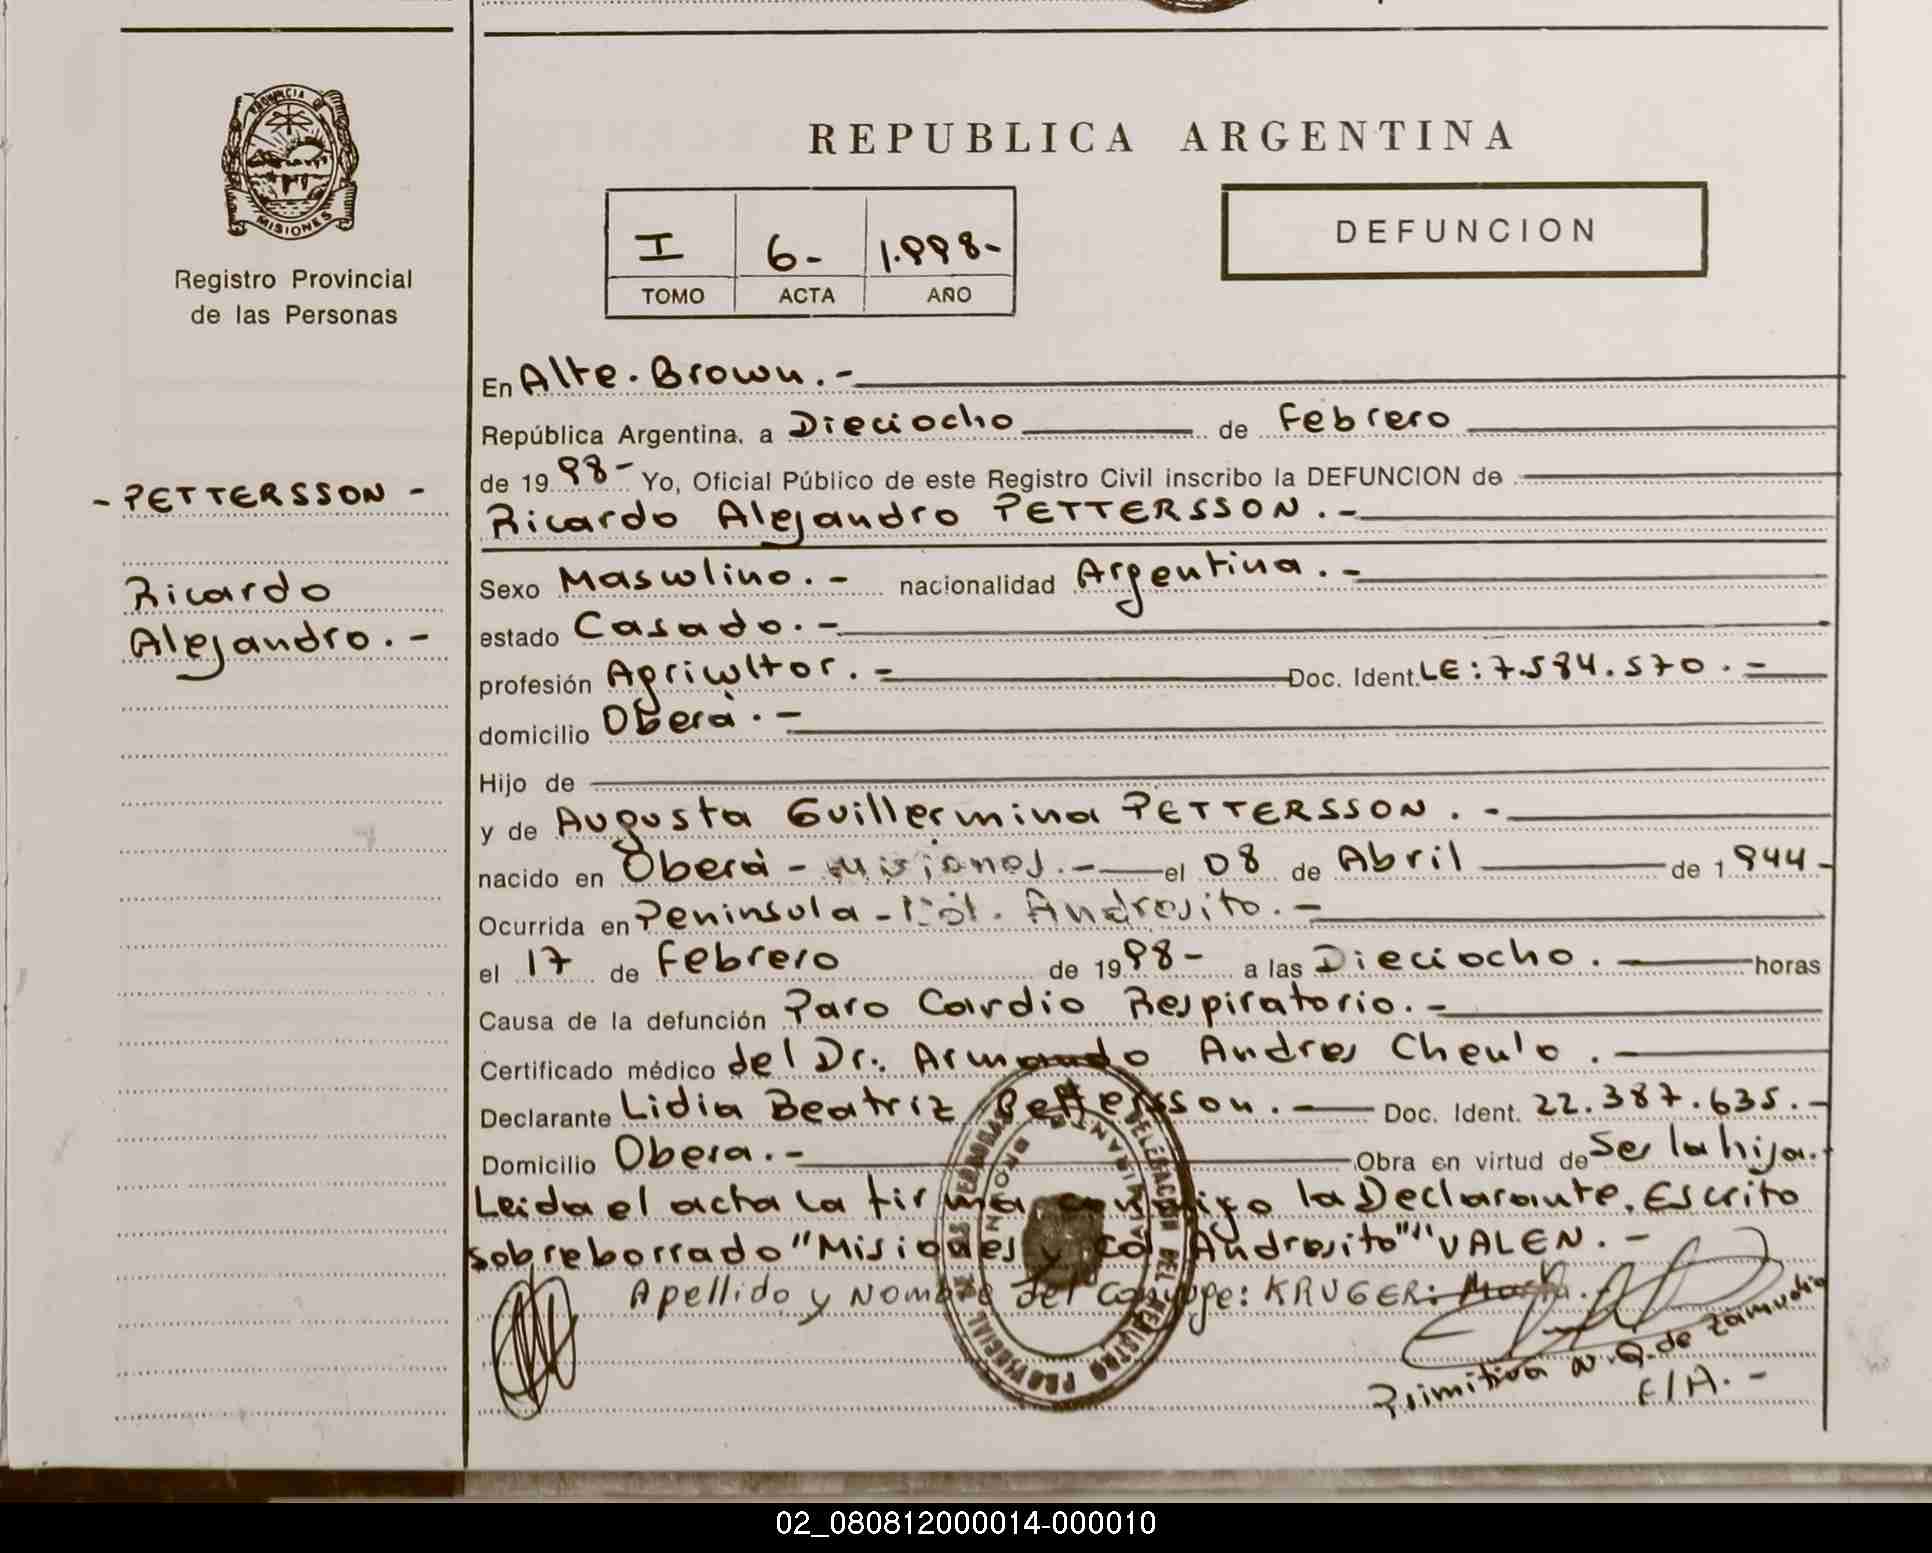 PROVINCIA DE
MISIONES
Registro Provincial
de las Personas
- PETTERSSON -
Ricardo
Alejandro. -
REPUBLICA ARGENTINA
I 6- 1.998-
TOMO ACTA AÑO
DEFUNCION
En Alte. Brown. -
República Argentina, a Dieciocho de Febrero
de 19 98- Yo, Oficial Público de este Registro Civil inscribo la DEFUNCION de
Ricardo Alejandro PETTERSSON. -
Sexo Masculino. - nacionalidad Argentina. -
estado Casado. -
profesión Agricultor. - Doc. Ident. LE: 7.584.570. -
domicilio Oberá. -
Hijo de
y de Augusta Guillermina PETTERSSON. -
nacido en Oberá - Misiones. - el 08 de Abril de 1 944 -
Ocurrida en Peninsula - Col. Andresito. -
el 17 de Febrero de 19 98- a las Dieciocho. - horas
Causa de la defunción Paro Cardio Respiratorio. -
Certificado médico del Dr. Armando Andres Cheulo. -
Declarante Lidia Beatriz Pettersson. - Doc. Ident. 22.387.635. -
Domicilio Obera. - Obra en virtud de Ser la hija. -
Leida el acta la firma conmigo la Declarante. Escrito
sobreborrado "Misiones y Col Andresito" "VALEN. -
Apellido y Nombre del Conyuge: KRUGER: Marta. -
Primitiva N. Q. de Zamudio
E/A. -
DELEGACION DEL REGISTRO PROVINCIAL DE LAS PERSONAS
ALMIRANTE BROWN
02_080812000014-000010